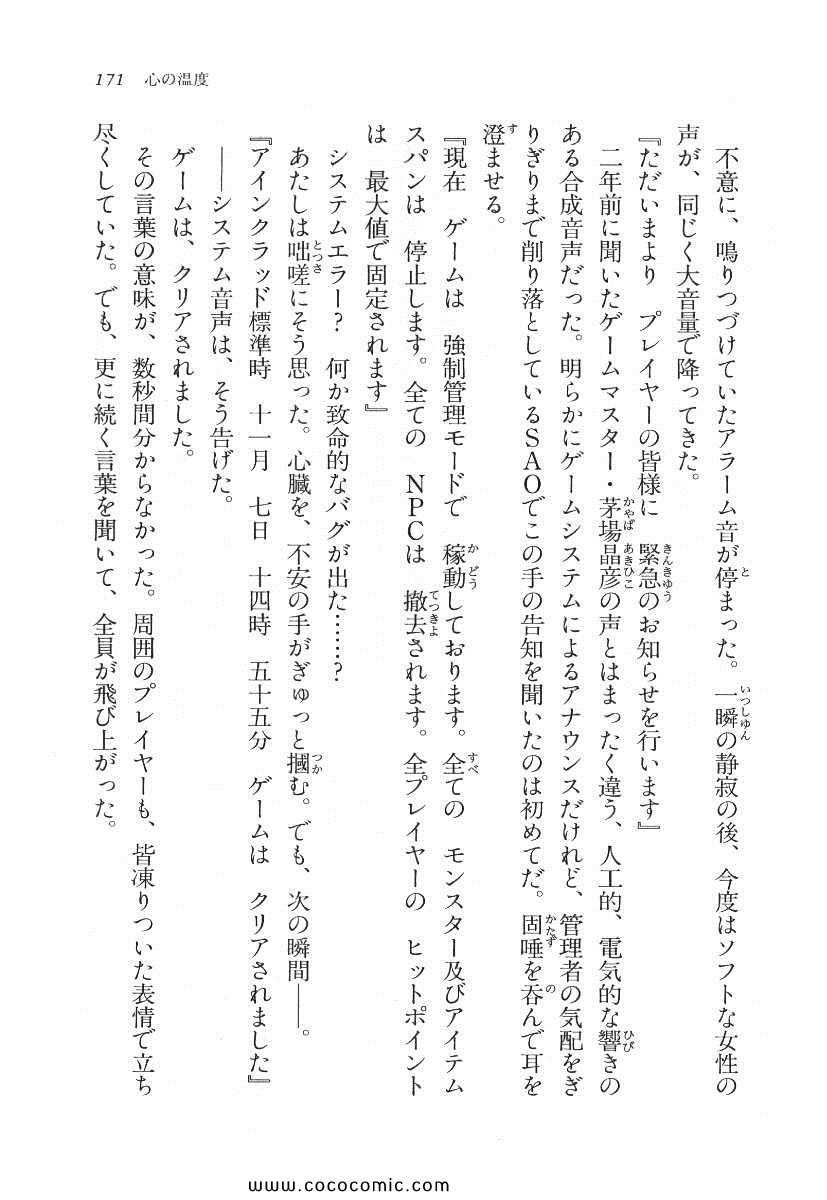 171 心の温度
不意に、鳴りつづけていたアラーム音が停まった。一瞬の静寂の後、今度はソフトな女性の
声が、同じく大音量で降ってきた。
『ただいまより　プレイヤーの皆様に　緊急のお知らせを行います』
二年前に聞いたゲームマスター・茅場晶彦の声とはまったく違う、人工的、電気的な響きの
ある合成音声だった。明らかにゲームシステムによるアナウンスだけれど、管理者の気配をぎ
りぎりまで削り落としているＳＡＯでこの手の告知を聞いたのは初めてだ。固唾を呑んで耳を
澄ませる。
『現在　ゲームは　強制管理モードで　稼動しております。全ての　モンスター及びアイテム
スパンは　停止します。全ての　ＮＰＣは　撤去されます。全プレイヤーの　ヒットポイント
は　最大値で固定されます』
システムエラー？　何か致命的なバグが出た……？
あたしは咄嗟にそう思った。心臓を、不安の手がぎゅっと摑む。でも、次の瞬間――。
『アインクラッド標準時　十一月　七日　十四時　五十五分　ゲームは　クリアされました』
――システム音声は、そう告げた。
ゲームは、クリアされました。
その言葉の意味が、数秒間分からなかった。周囲のプレイヤーも、皆凍りついた表情で立ち
尽くしていた。でも、更に続く言葉を聞いて、全員が飛び上がった。
www.cococomic.com